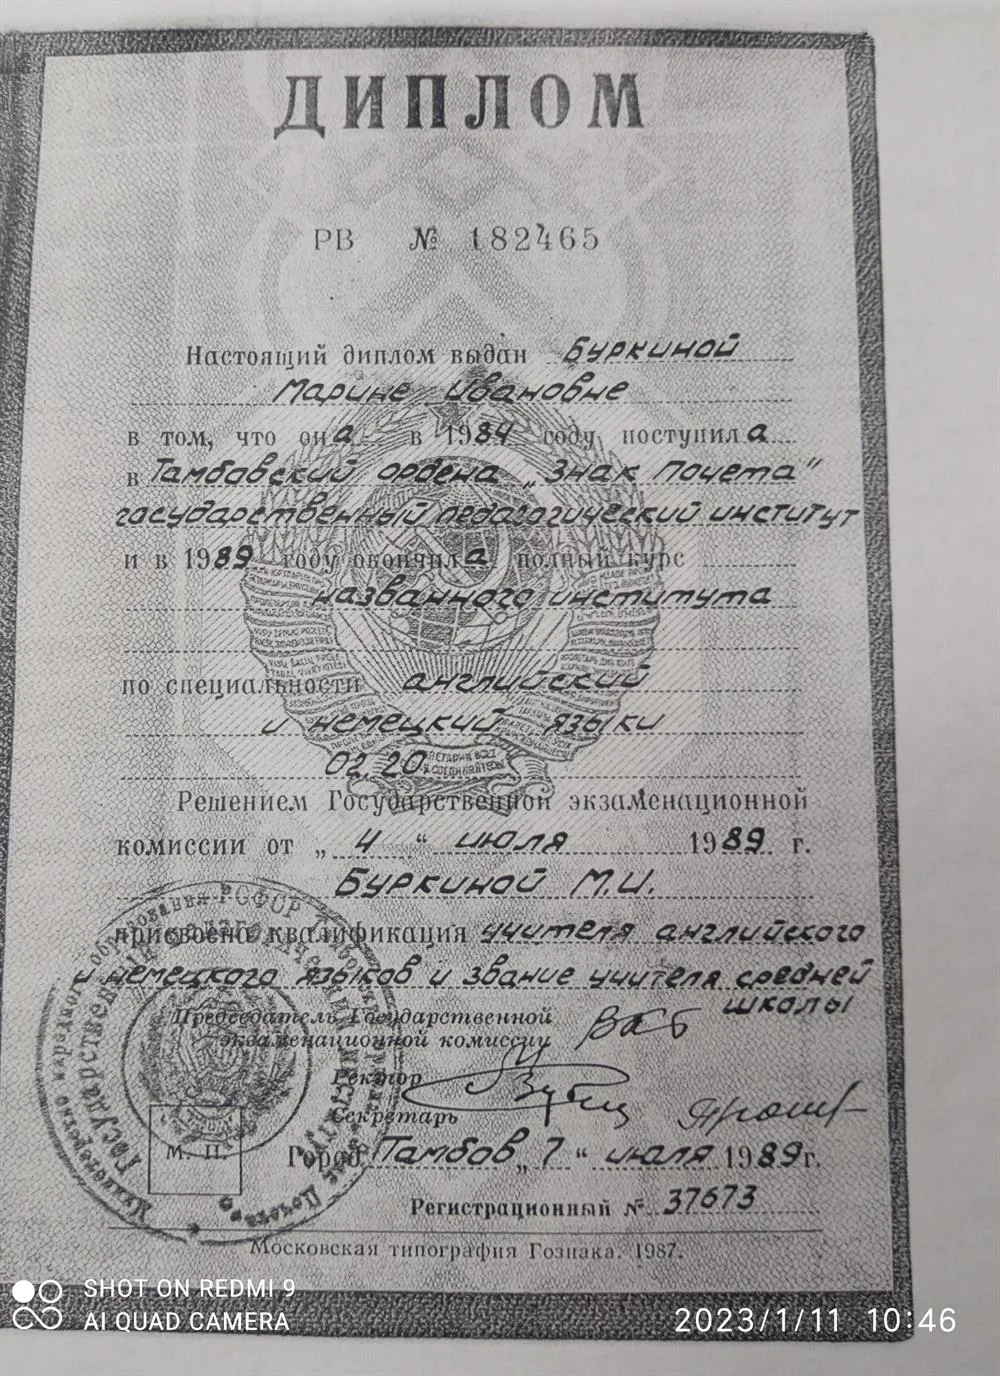 ДИПЛОМ
РВ № 182465
Настоящий диплом выдан Буркиной
Марине Ивановне
в том, что она в 1984 году поступила
в Тамбовский ордена „Знак Почета“
государственный педагогический институт
и в 1989 году окончила полный курс
названного института
по специальности английский
и немецкий языки
02.20.
Решением Государственной экзаменационной
комиссии от „4“ июля 1989 г.
Буркиной М.И.
присвоена квалификация учителя английского
и немецкого языков и звание учителя средней
школы
Председатель Государственной
экзаменационной комиссии
Ректор
Секретарь
М. П.
Город Тамбов „7“ июля 1989г.
Регистрационный № 37673
Московская типография Гознака. 1987.
SHOT ON REDMI 9
AI QUAD CAMERA
2023/1/11 10:46